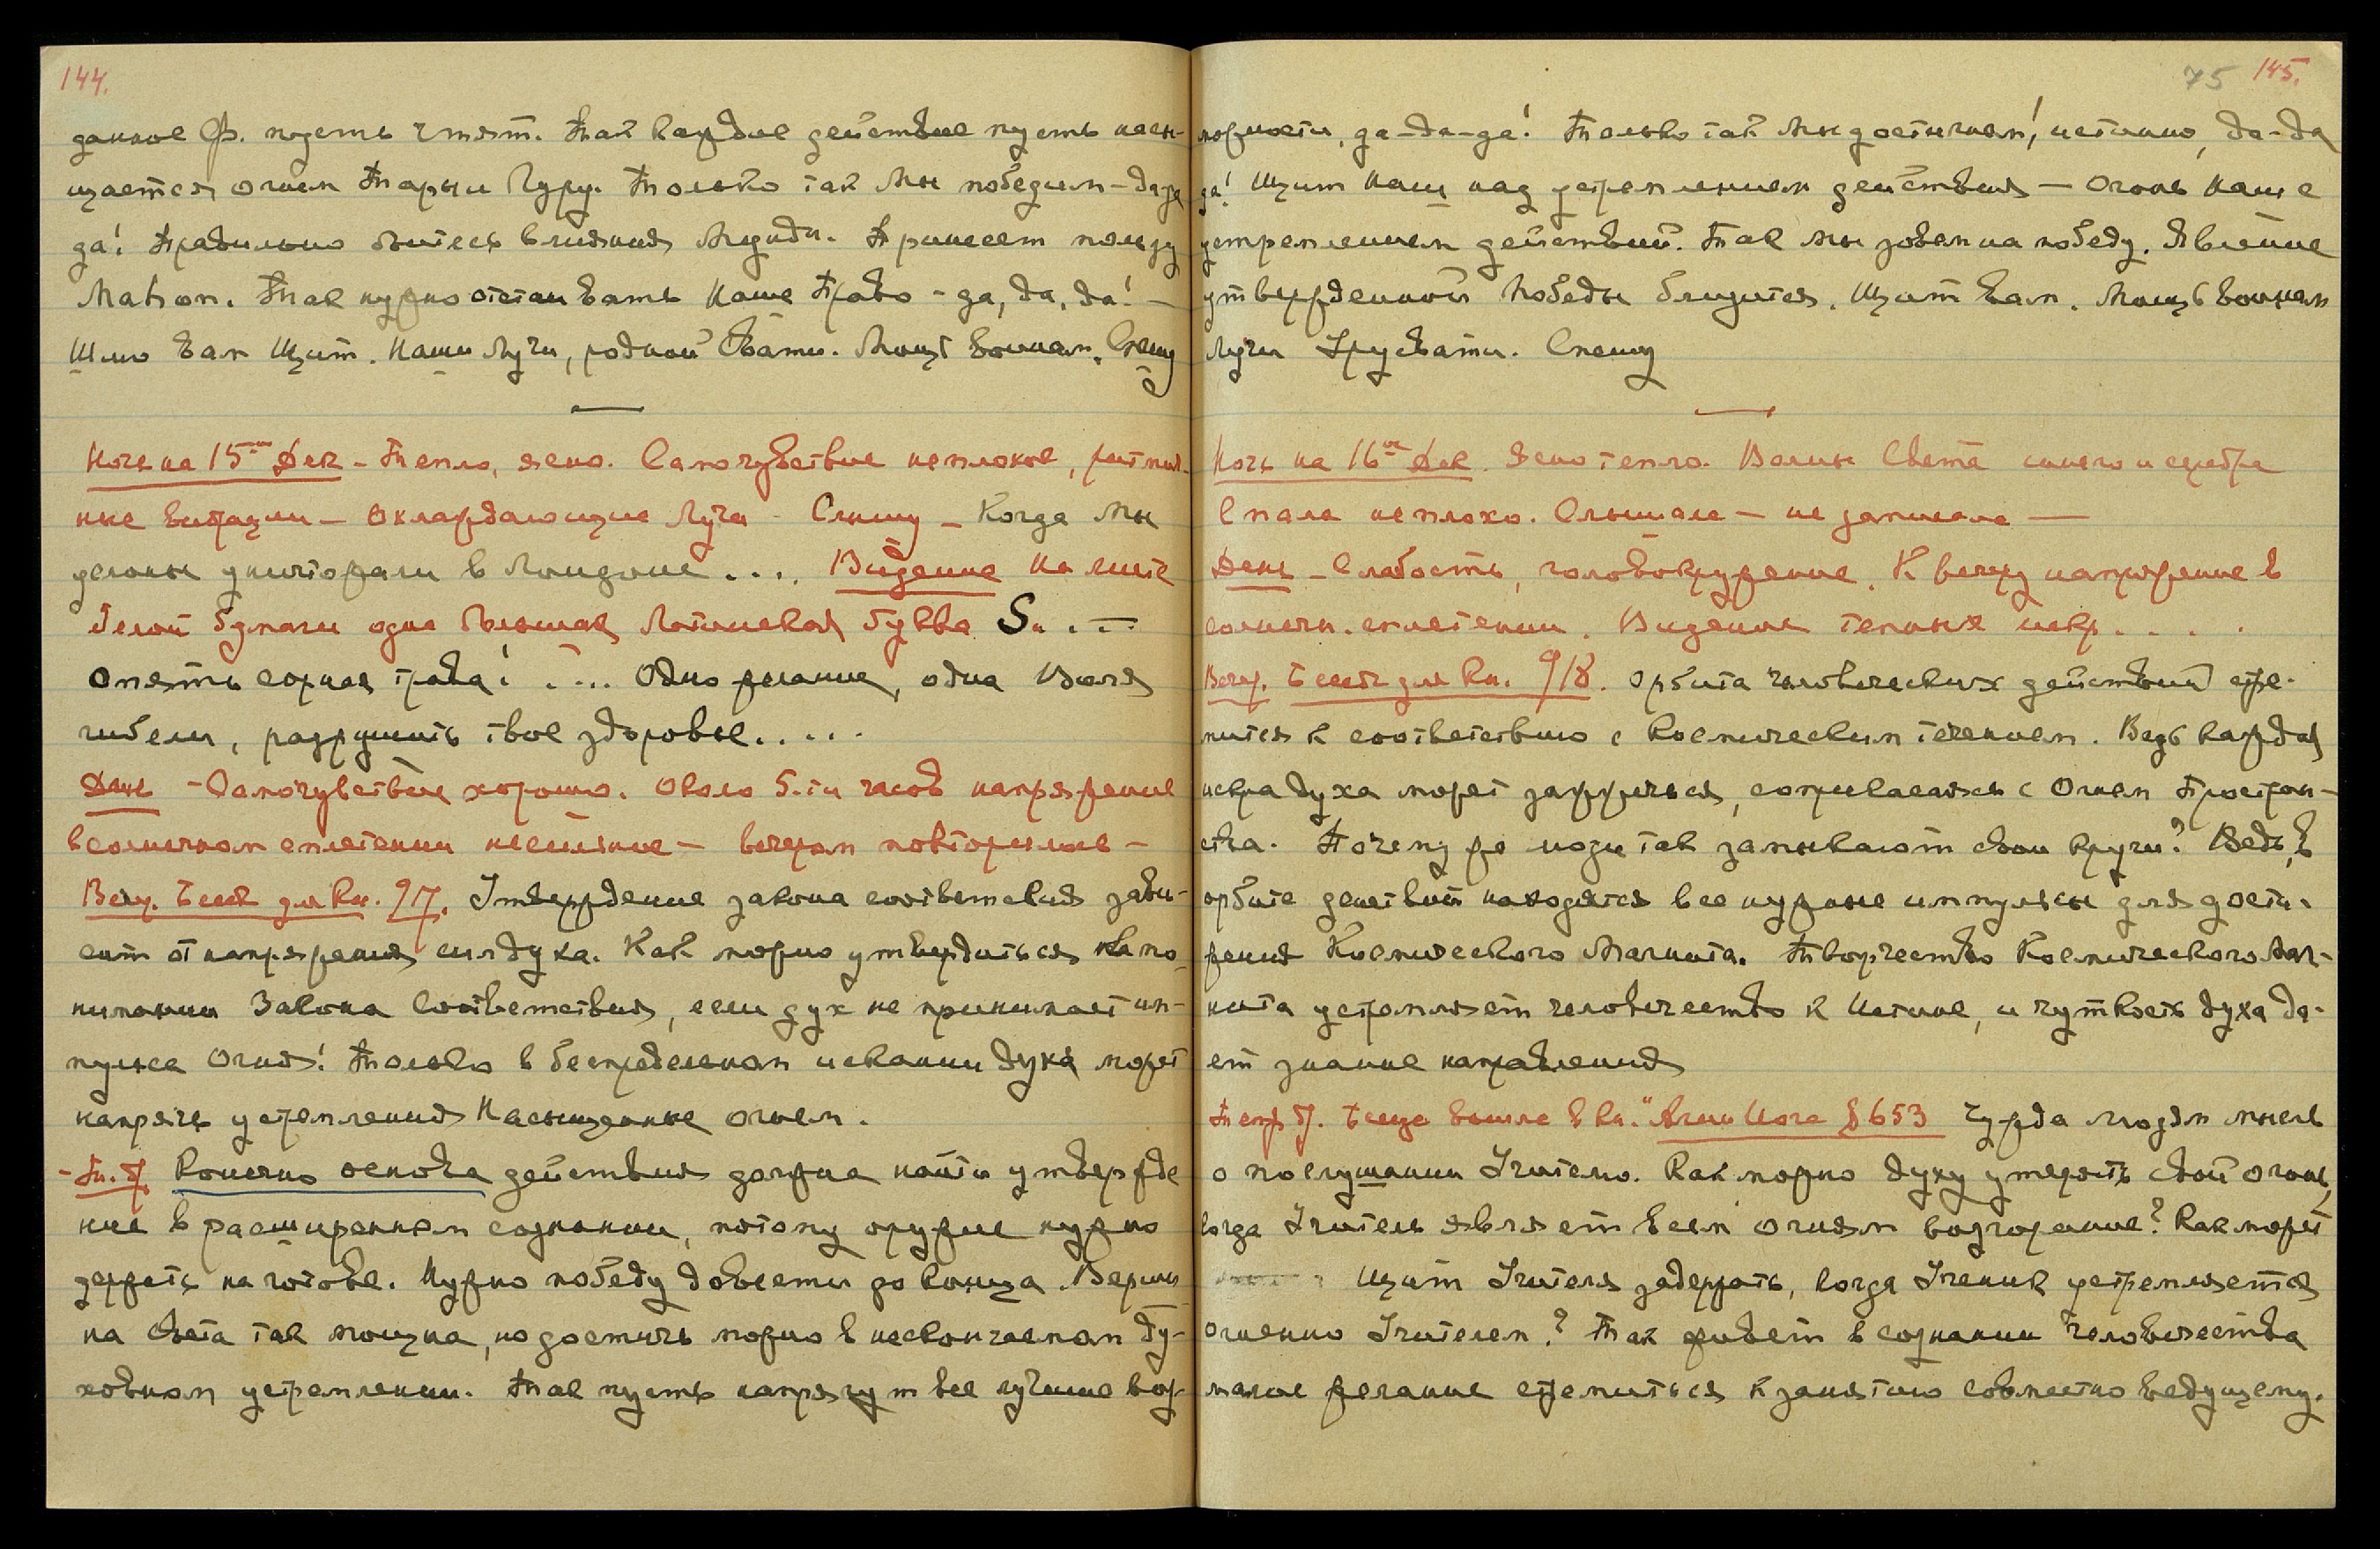 144.
данное Ф. пусть чтят. Так каждое действие пусть насы-
щается огнем Тары и Гуру. Только так Мы победим - да-да
да! Правильно бойтесь влияния Принесет пользу
Mahon. Так нужно отстаивать Наше Право - да, да, да! —
Шлю вам Щит. Наши Лучи, родной Свати. Мощь воинам. Спешу
Ночь на 15ое Дек - Тепло, ясно. Самочувствие неплохое, ритмич-
ные вибрации - Охлаждающие Лучи - Слышу - Когда мы
уничтожали в Лондоне .... Видение На листе
белой бумаги одна большая Латинская буква S. . —
Опять сорная трава! .... Одно желание, одна Воля
гибели, разрушить твое здоровье.....
День - Самочувствие хорошо. Около 5-ти часов напряжение
в солнечном сплетении несильное - вечером повторилось -
Веч. Бесед для Кн. 917. Утверждение закона соответствия зави-
сит от напряжения сил духа. Как можно утвердиться на по-
нимании Закона Соответствия, если дух не принимает им-
пульса Огня! Только в беспредельном искании духа может
напрячь устремления Насыщенные огнем.
- Т. б. Конечно основа действия должна найти утвержде
ние в расширенном сознании, потому оружие нужно
держать на готове. Нужно победу довести до конца. Верши-
на Света так мощна, но достичь можно в нескончаемом ду-
ховном устремлении. Так пусть напрягут все лучшие воз-
75 145.
можности, да-да-да! Только так Мы достигнем! истинно, да-да
да! Щит Наш над устремлением действия — Огонь Наш с
устремлением действий. Так Мы зовем на победу. Явление
утвержденной Победы близится. Щит вам. Мощь воинам
Лучи Урусвати. Спешу
Ночь на 16ое Дек. Ясно тепло. Волны Света синего и серебра
Спала неплохо. Слышала — не записала —
День - Слабость, головокружение. К вечеру напряжение в
солнечн. сплетении. Видение темных искр. . . .
Вечер. Бесед для Кн. 918. Орбита человеческих действий стре-
мится к соответствию с Космическим течением. Ведь каждая
искра духа может зажжечься, соприкасаясь с Огнем Простран-
ства. Почему же люди так замыкают свои круги? Ведь, в
орбите действий находятся все нужные импульсы для дости-
жения Космического Магнита. Творчество Космического Маг-
нита устремляет человечество к Истине, и чуткость духа да-
ет знание направления
Теперь б. Беседа вошла в Кн. "Агни Йога § 653 Чужда людям мысль
о послушании Учителю. Как можно духу утерять свой огонь,
когда Учитель являет всем огням возгорение? Как может
Щит Учителя задержать, когда Ученик устремляется
огненно Учителем? Так живет в сознании человечества
малое желание стремиться к занятию совместно ведущему.